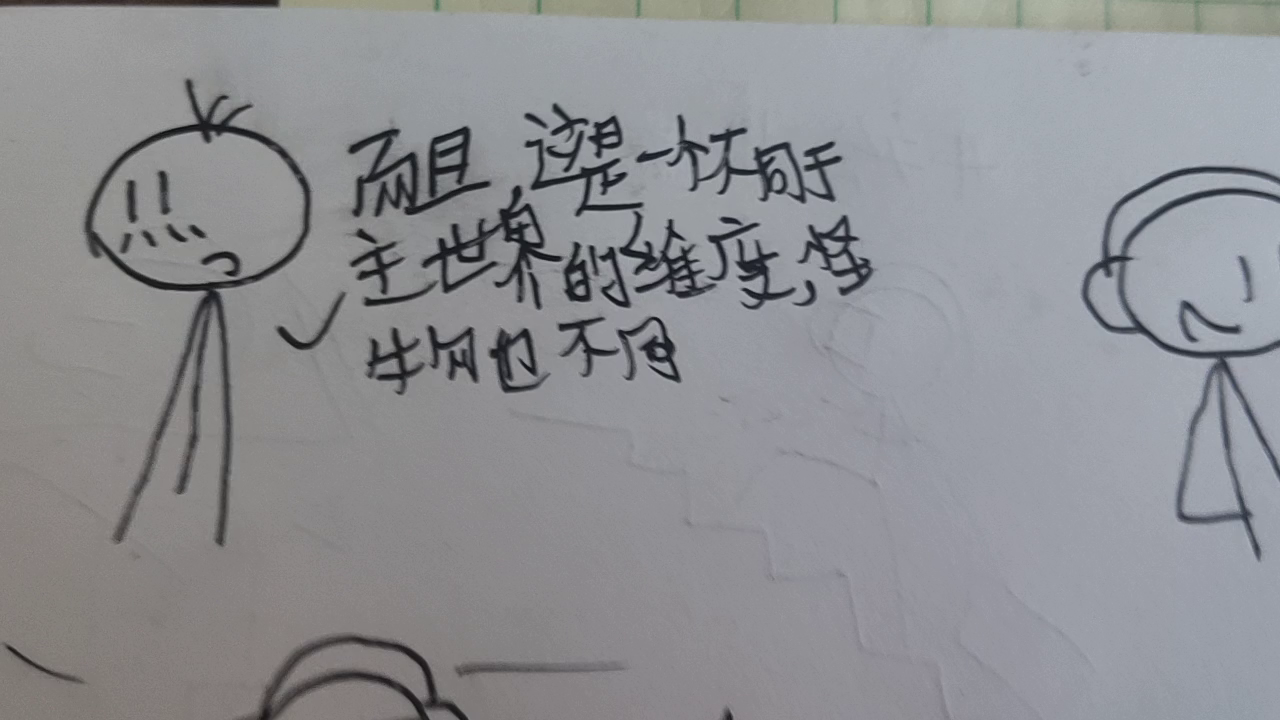 而且,这是一个不同于
主世界的维度,怪
生物也不同